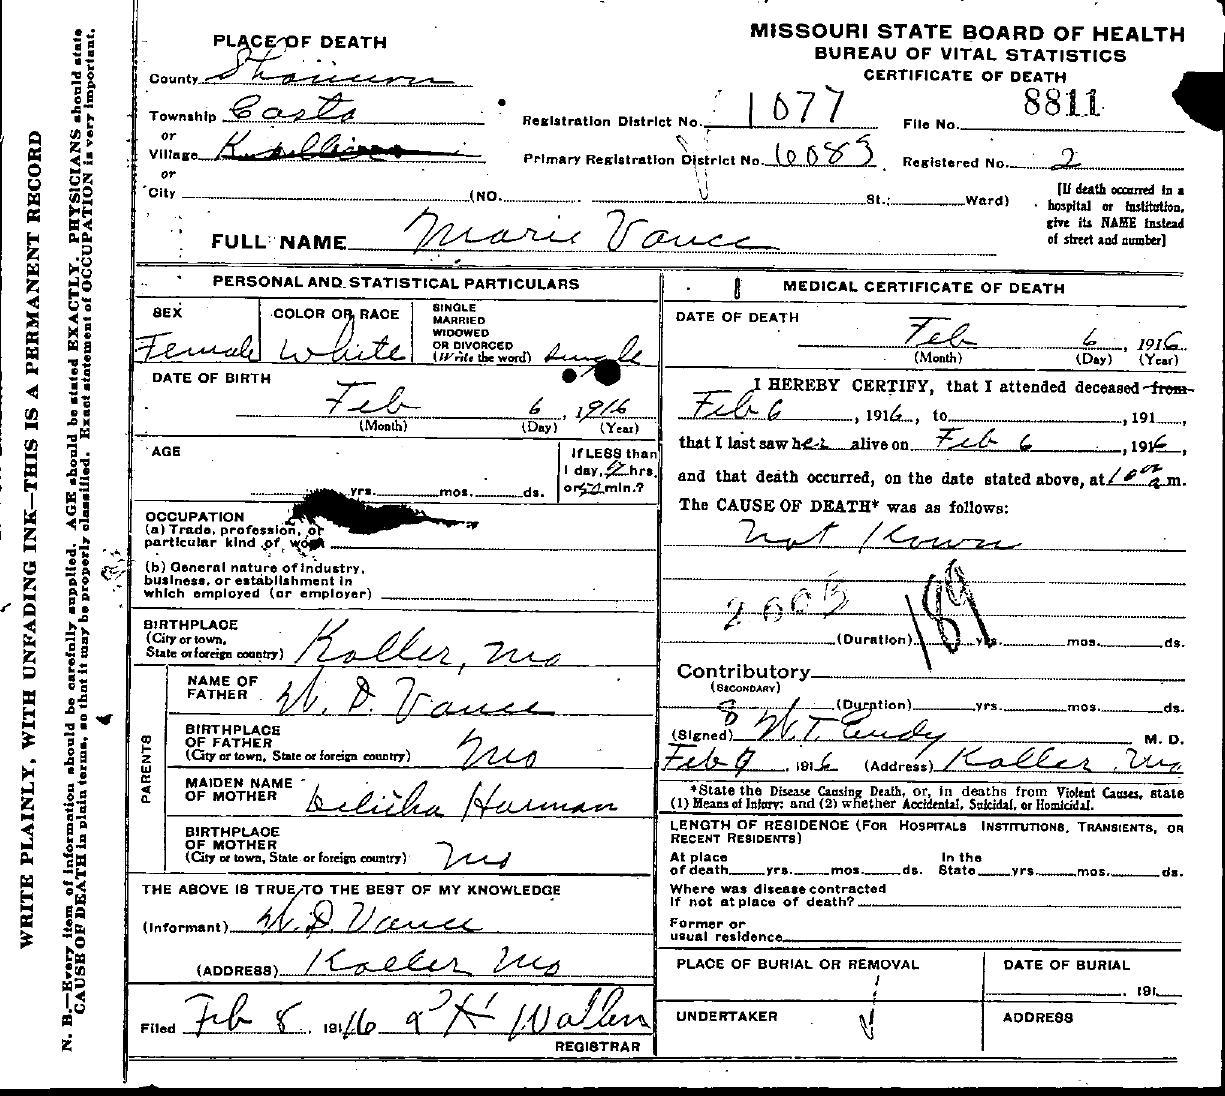 WRITE PLAINLY, WITH UNFADING INK—THIS IS A PERMANENT RECORD
N. B.—Every item of information should be carefully supplied. AGE should be stated EXACTLY. PHYSICIANS should state
CAUSE OF DEATH in plain terms, so that it may be properly classified. Exact statement of OCCUPATION is very important.
MISSOURI STATE BOARD OF HEALTH
BUREAU OF VITAL STATISTICS
CERTIFICATE OF DEATH
PLACE OF DEATH
County Shannon
Township
or
Village
or
City (NO. St.; Ward)
Registration District No. 1077 File No. 8811
Primary Registration District No. 6083 Registered No. 2
[If death occurred in a
hospital or institution,
give its NAME instead
of street and number]
FULL NAME Marie Vance
PERSONAL AND STATISTICAL PARTICULARS
SEX
Female
COLOR OR RACE
White
SINGLE
MARRIED
WIDOWED
OR DIVORCED
(Write the word) Single
DATE OF BIRTH
Feb 6, 1916
(Month) (Day) (Year)
AGE
yrs. mos. ds.
If LESS than
1 day, hrs.
or min.?
OCCUPATION
(a) Trade, profession, or
particular kind of work
(b) General nature of industry,
business, or establishment in
which employed (or employer)
BIRTHPLACE
(City or town,
State or foreign country) Koller, Mo
PARENTS
NAME OF
FATHER W. D. Vance
BIRTHPLACE
OF FATHER
(City or town, State or foreign country) Mo
MAIDEN NAME
OF MOTHER Harman
BIRTHPLACE
OF MOTHER
(City or town, State or foreign country) Mo
THE ABOVE IS TRUE TO THE BEST OF MY KNOWLEDGE
(Informant) W. D. Vance
(ADDRESS) Koller Mo
Filed Feb 8, 1916
REGISTRAR
MEDICAL CERTIFICATE OF DEATH
DATE OF DEATH
Feb 6, 1916
(Month) (Day) (Year)
I HEREBY CERTIFY, that I attended deceased from
Feb 6, 1916, to , 191
that I last saw her alive on Feb 6 1916,
and that death occurred, on the date stated above, at 10 00 a m.
The CAUSE OF DEATH* was as follows:
Not Known
189
(Duration) yrs. mos. ds.
Contributory
(SECONDARY)
(Duration) yrs. mos. ds.
(Signed) W. T. Eudy M. D.
Feb 9, 1916 (Address) Koller Mo
*State the Disease Causing Death, or, in deaths from Violent Causes, state
(1) Means of Injury; and (2) whether Accidental, Suicidal, or Homicidal.
LENGTH OF RESIDENCE (FOR HOSPITALS INSTITUTIONS, TRANSIENTS, OR
RECENT RESIDENTS)
At place In the
of death yrs. mos. ds. State yrs. mos. ds.
Where was disease contracted
if not at place of death?
Former or
usual residence
PLACE OF BURIAL OR REMOVAL
DATE OF BURIAL
, 191
UNDERTAKER
ADDRESS